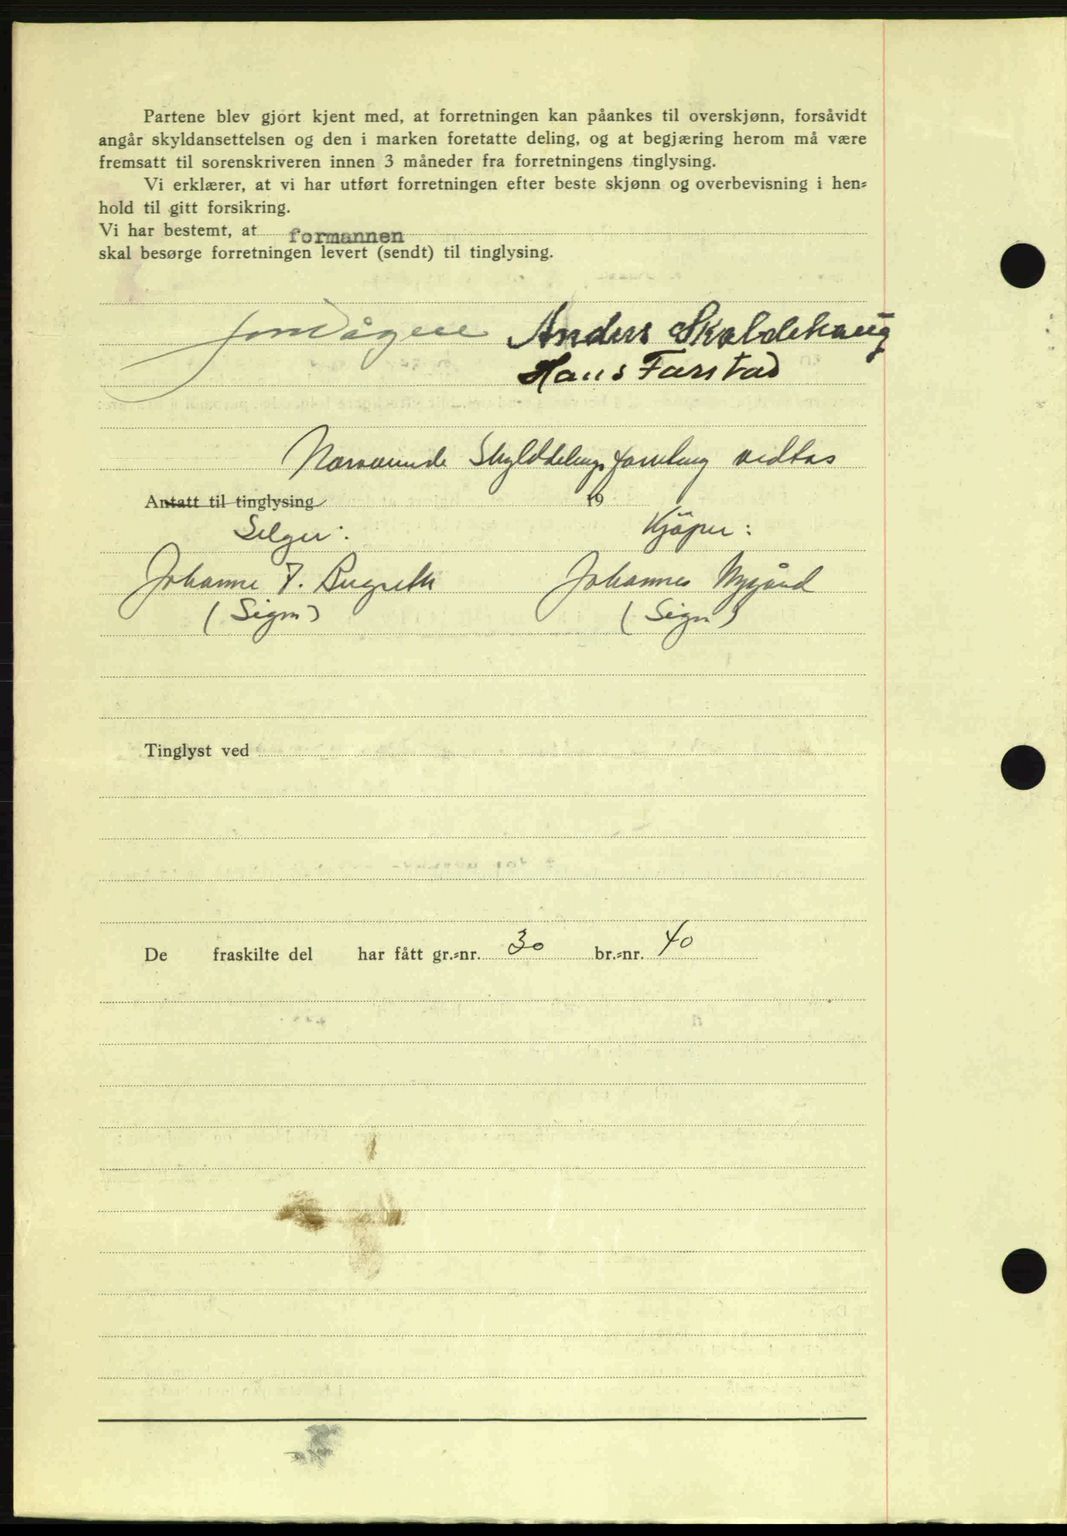 Partene blev gjort kjent med, at forretningen kan påankes til overskjønn, forsåvidt
angår skyldansettelsen og den i marken foretatte deling, og at begjæring herom må være
fremsatt til sorenskriveren innen 3 måneder fra forretningens tinglysing.
Vi erklærer, at vi har utført forretningen efter beste skjønn og overbevisning i hen-
hold til gitt forsikring.
Vi har bestemt, at formannen
skal besørge forretningen levert (sendt) til tinglysing.
Jon Vågene Anders Skoldehaug
Hans Farstad
Nærværende Skylddelings vedtas
Antatt til tinglysing 19
Selger: Kjöper:
Johanne J. Johannes Nygård
(Sign) (Sign)
Tinglyst ved
De fraskilte del har fått gr.-nr. 30 br.-nr. 40